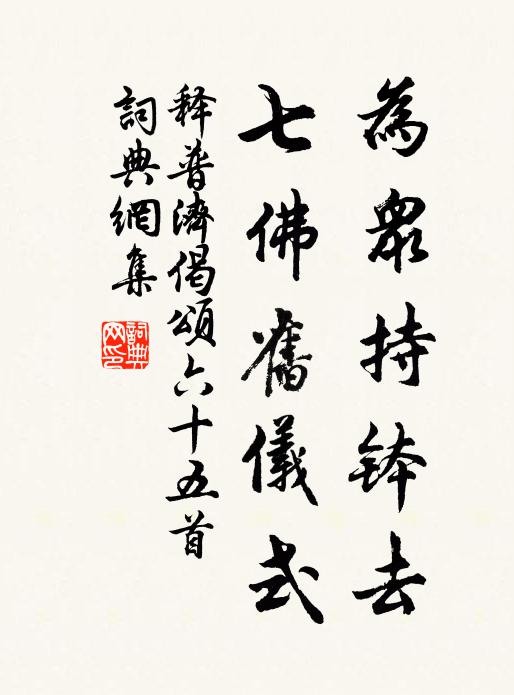 為眾持鉢去
七佛舊儀式
释普濟偈頌六十五首
詞典網集
詞典网印